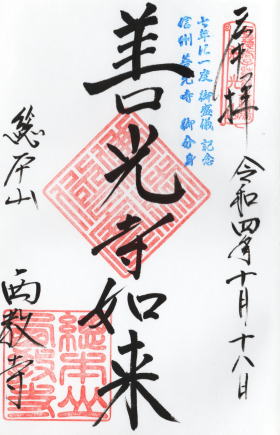 奉拝
令和四年十月十八日
七年に一度 御盛儀 記念
信州善光寺 御分身
善光寺如来
総本山
西教寺
総本山
西教寺